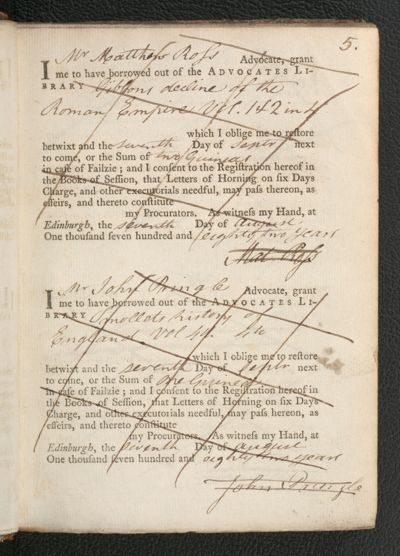 5.
I Mr Matthew Roſs Advocate, grant
me to have borrowed out of the ADVOCATES LI-
BRARY Gibbons decline of the
Roman Empire Vol. 1 & 2 in 4
which I oblige me to reſtore
betwixt and the seventh Day of Septr next
to come, or the Sum of two Guineas
in caſe of Failzie; and I conſent to the Regiſtration hereof in
the Books of Seſſion, that Letters of Horning on ſix Days
Charge, and other executorials needful, may paſs thereon, as
effeirs, and thereto conſtitute
my Procurators. As witneſs my Hand, at
Edinburgh, the seventh Day of august
One thouſand ſeven hundred and eighty two years
Mat. Roſs
I Mr John Pringle Advocate, grant
me to have borrowed out of the ADVOCATES LI-
BRARY Smollets history of
England Vol 4th 4to
which I oblige me to reſtore
betwixt and the seventh Day of Septr next
to come, or the Sum of one Guinea
in caſe of Failzie; and I conſent to the Regiſtration hereof in
the Books of Seſſion, that Letters of Horning on ſix Days
Charge, and other executorials needful, may paſs thereon, as
effeirs, and thereto conſtitute
my Procurators. As witneſs my Hand, at
Edinburgh, the seventh Day of august
One thouſand ſeven hundred and eighty two years
John Pringle